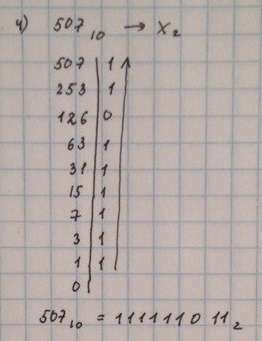 ч) 507₁₀ → X₂
507 | 1
253 | 1
126 | 0
63 | 1
31 | 1
15 | 1
7 | 1
3 | 1
1 | 1
0
507₁₀ = 111111 0 11₂